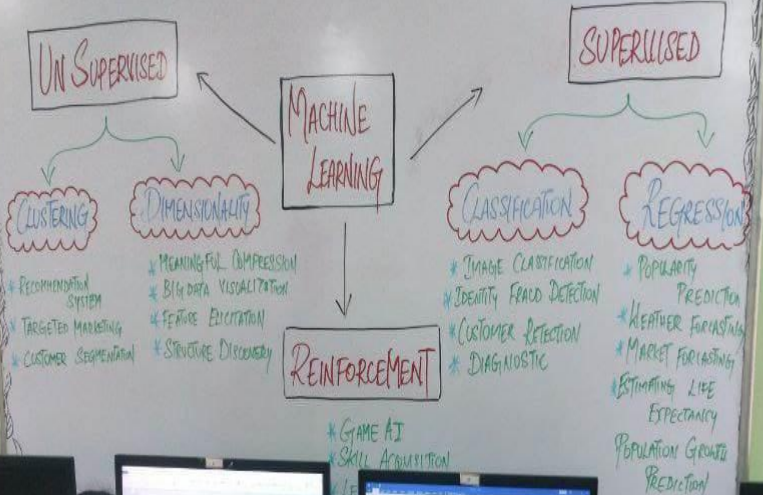 UN SUPERVISED
SUPERUISED
MACHINE
LEARNING
CLUSTERING
DIMENSIONALITY
CLASSIFICATION
REGRESSION
* RECOMMENDATION
SYSTEM
* TARGETED MARKETING
* CUSTOMER SEGMENTATION
* MEANINGFUL COMPRESSION
* BIG DATA VISUALIZATION
* FEATURE ELICITATION
* STRUCTURE DISCOVERY
* IMAGE CLASSIFICATION
* IDENTITY FRAUD DETECTION
* CUSTOMER RETECTION
* DIAGNOSTIC
* POPULARITY
PREDICTION
* WEATHER FORCASTING
* MARKET FORCASTING
* ESTIMATING LIFE
EXPECTANCY
POPULATION GROWTH
PREDICTION
REINFORCEMENT
* GAME AI
* SKILL ACQUISITION